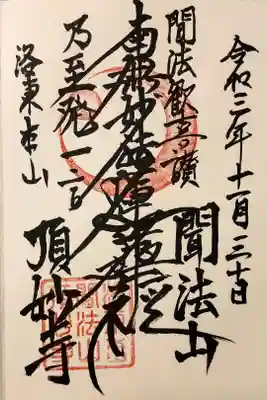 令和三年十一月三十日
聞法歓喜讃
聞法山
南無妙法蓮華経
乃至発一言
洛東本山
頂妙寺